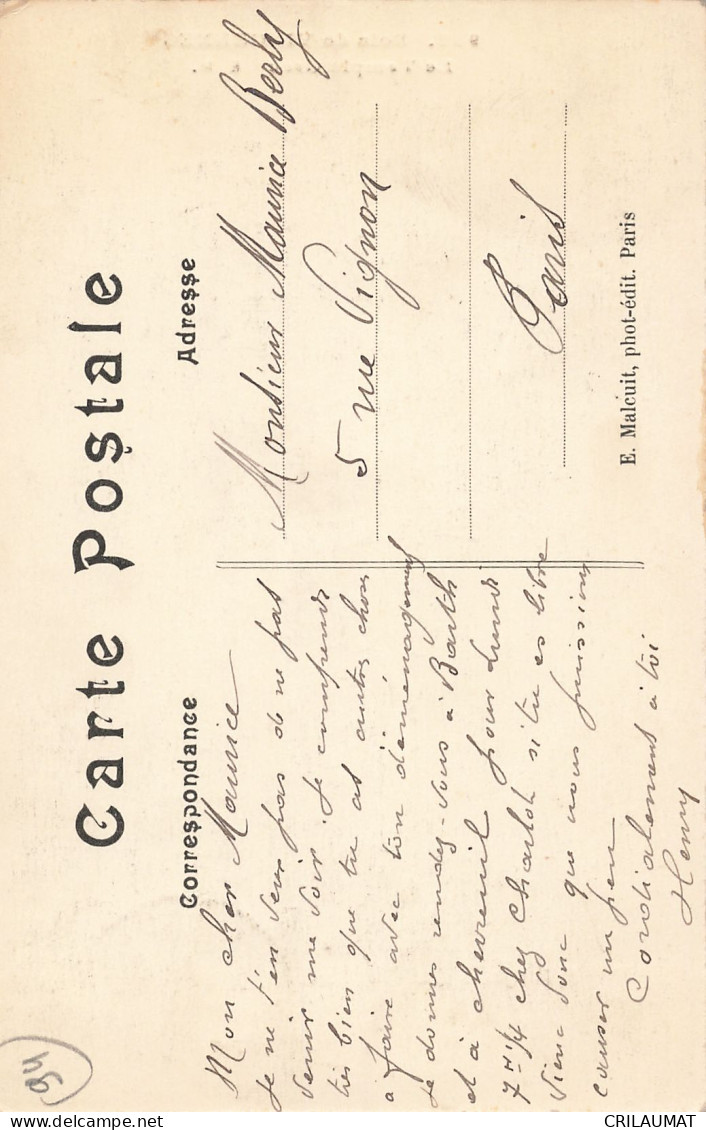 Carte Postale
Correspondance
Mon cher Maurice
Je ne t'en veux pas de ne pas
venir me voir. Je comprends
très bien que tu as autres choses
à faire avec ton déménagement
Je donnes rendez-vous à Barth
et à chevreuil pour Lundi
7h 1/4 chez Charlot si tu es libre
Viens donc que nous puissions
causer un peu
Cordialement à toi
Henry
Adresse
Monsieur Maurice Berly
5 rue Vignon
Paris
E. Malcuit, phot-édit. Paris
94
CRILAUMAT